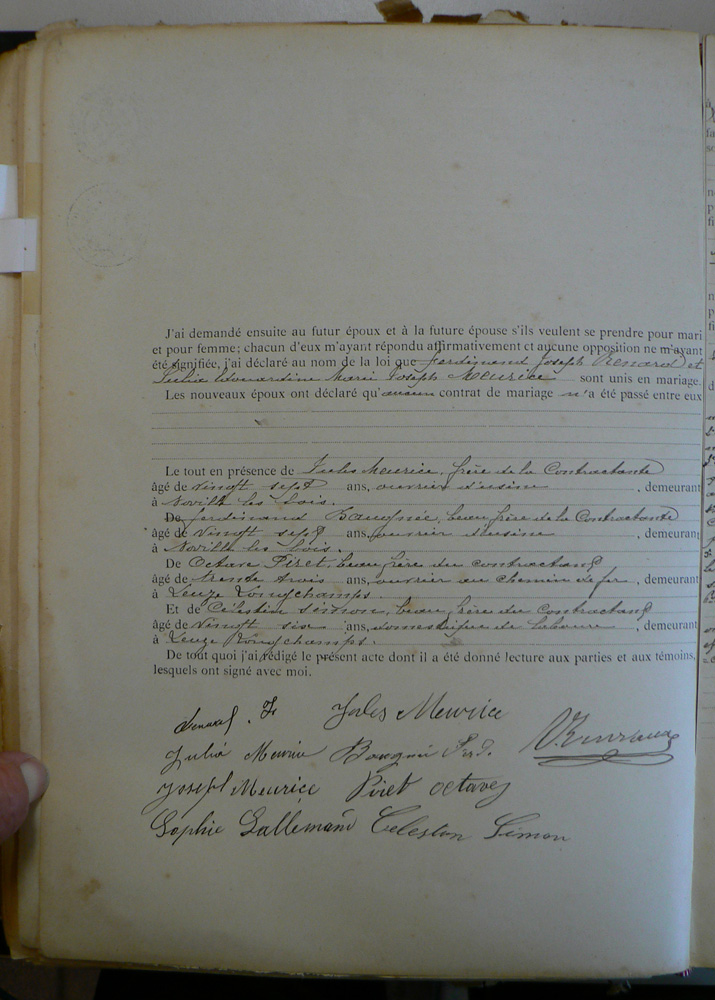 J'ai demandé ensuite au futur époux et à la future épouse s'ils veulent se prendre pour mari
et pour femme; chacun d'eux m'ayant répondu affirmativement et aucune opposition ne m'ayant
été signifiée, j'ai déclaré au nom de la loi que ferdinand Joseph Renard et
Julia Marie Joseph Meurice sont unis en mariage.
Les nouveaux époux ont déclaré qu'aucun contrat de mariage n'a été passé entre eux
Le tout en présence de Jules Meurice, frère de la Contractante
âgé de vingt sept ans, ouvrier d'usine, demeurant
à Noville les bois.
De ferdinand Baugniée, beau frère de la Contractante
âgé de vingt sept ans, ouvrier d'usine, demeurant
à Noville les bois.
De Octave Piret, beau frère du contractant
âgé de trente trois ans, ouvrier au chemin de fer, demeurant
à Leuze Longchamps.
Et de Célestin Simon, beau frère du Contractant
âgé de vingt six ans, domestique de labour, demeurant
à Leuze Longchamps.
De tout quoi j'ai rédigé le présent acte dont il a été donné lecture aux parties et aux témoins,
lesquels ont signé avec moi.
Renard. F. Jules Meurice
Julia Meurice
Joseph Meurice Piret octave
Sophie Lallemand Celestin Simon